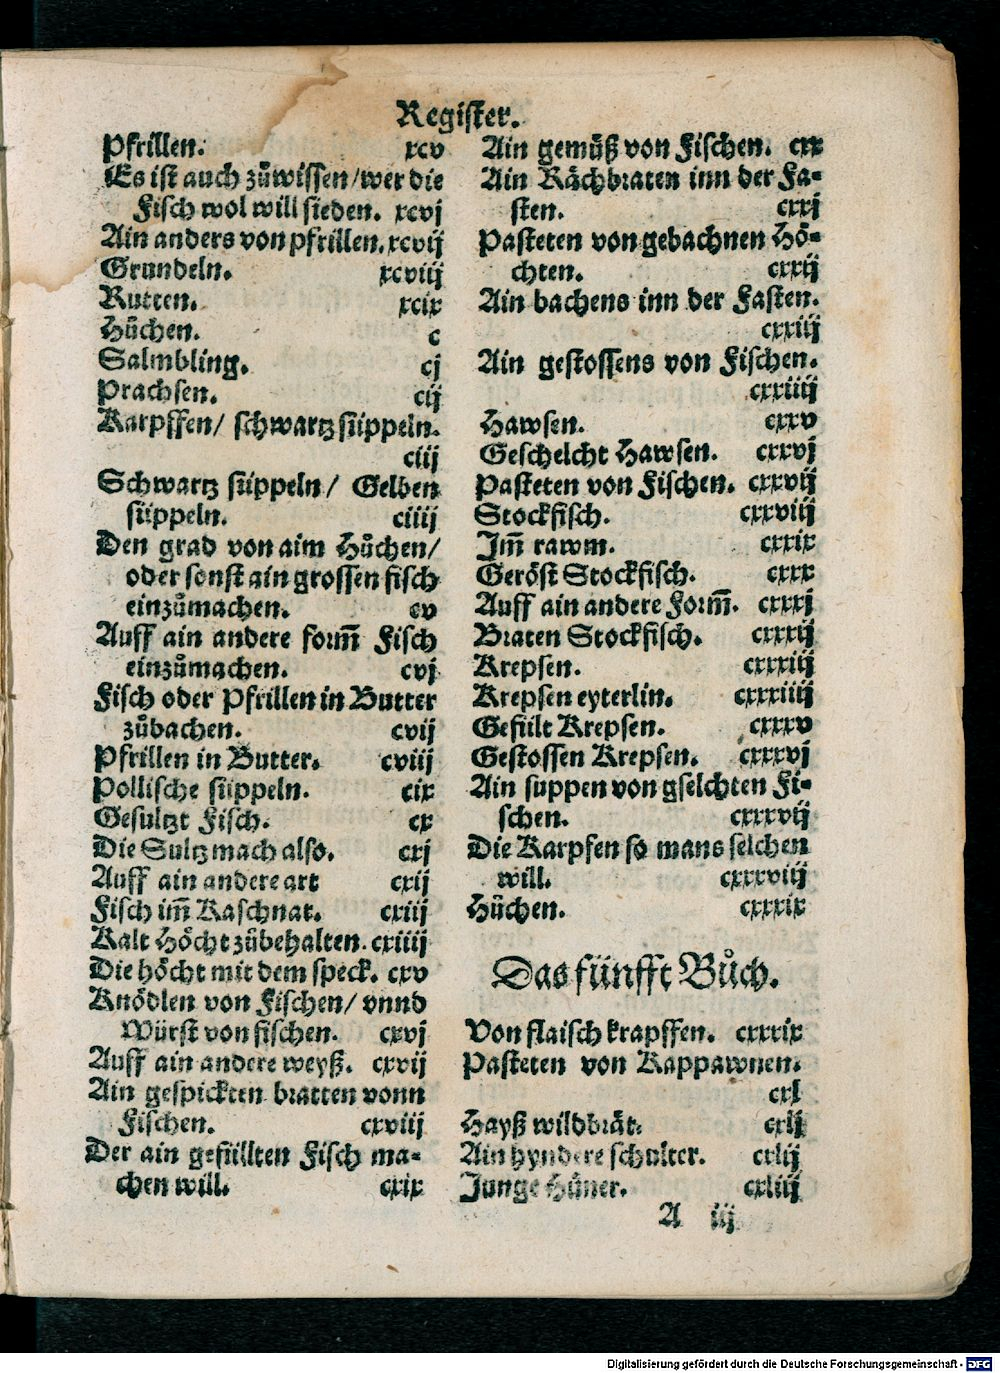 Register.
Pfrillen. xcv
Es ist auch zůwissen/wer die
Fisch wol will sieden. xcvj
Ain anders von pfrillen. xcvij
Grundeln. xcviij
Rutten. xcix
Hůchen. c
Salmbling. cj
Prachsen. cij
Karpffen/ schwartz süppeln.
ciij
Schwartz süppeln/ Gelben
süppeln. ciiij
Den grad von aim Hůchen/
oder sonst ain grossen fisch
einzůmachen. cv
Auff ain andere form̃ Fisch
einzůmachen. cvj
Fisch oder Pfrillen in Butter
zůbachen. cvij
Pfrillen in Butter. cviij
Pollische süppeln. cix
Gesultzt Fisch. cx
Die Sultz mach also. cxj
Auff ain andere art cxij
Fisch im̃ Kaschnat. cxiij
Kalt Höcht zůbehalten. cxiiij
Die höcht mit dem speck. cxv
Knödlen von Fischen/ vnnd
Würst von fischen. cxvj
Auff ain andere weyß. cxvij
Ain gespickten bratten vonn
Fischen. cxviij
Der ain gefüllten Fisch ma-
chen will. cxix
Ain gemůß von Fischen. cxx
Ain Rächbraten inn der Fa-
sten. cxxj
Pasteten von gebachnen Hö-
chten. cxxij
Ain bachens inn der Fasten.
cxxiij
Ain gestossens von Fischen.
cxxiiij
Hawsen. cxxv
Geschelcht Hawsen. cxxvj
Pasteten von Fischen. cxxvij
Stockfisch. cxxviij
Jm̃ rawm. cxxix
Geröst Stockfisch. cxxx
Auff ain andere Form̃. cxxxj
Braten Stockfisch. cxxxij
Krepsen. cxxxiij
Krepsen eyterlin. cxxxiiij
Gefült Krepsen. cxxxv
Gestossen Krepsen. cxxxvj
Ain suppen von gselchten Fi-
schen. cxxxvij
Die Karpfen so mans selchen
will. cxxxviij
Hůchen. cxxxix
Das fünfft Bůch.
Von flaisch krapffen. cxxxix
Pasteten von Kappawnen.
cxl
Hayß wildbrät. cxlj
Ain hyndere schulter. cxlij
Junge Hüner. cxliij
A iij
Digitalisierung gefördert durch die Deutsche Forschungsgemeinschaft - DFG